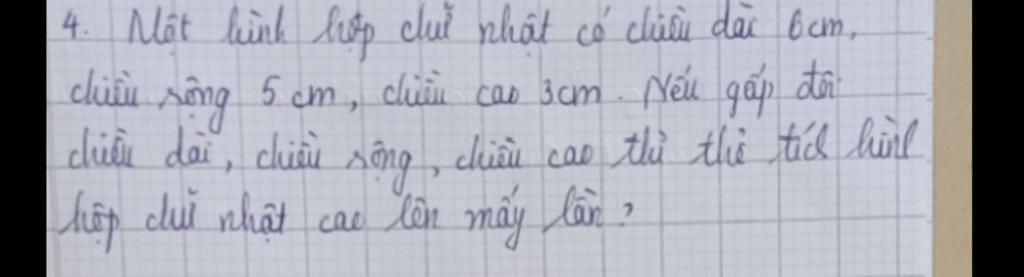 4. Một hình hộp chữ nhật có chiều dài 6cm,
chiều rộng 5 cm, chiều cao 3cm. Nếu gấp đôi
chiều dài, chiều rộng, chiều cao thì thể tích hình
hộp chữ nhật cao lên mấy lần?